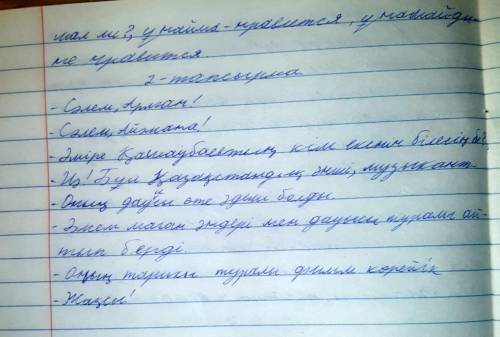 ұнайма - нравится, ұнамайды -
не нравится
2-тапсырма
- Сәлем, Арман!
- Сәлем, Айжана!
- Әміре Қашаубаетың кім екенін білесің бе?
- Иә! Бұл Қазақстандың әнші, музыкант.
- Оның даусы өте әдемі болды.
- Әжем маған әндері мен дауысы туралы ай-
тып берді.
- Оның тарихы туралы фильм көрейік
- Жақсы!